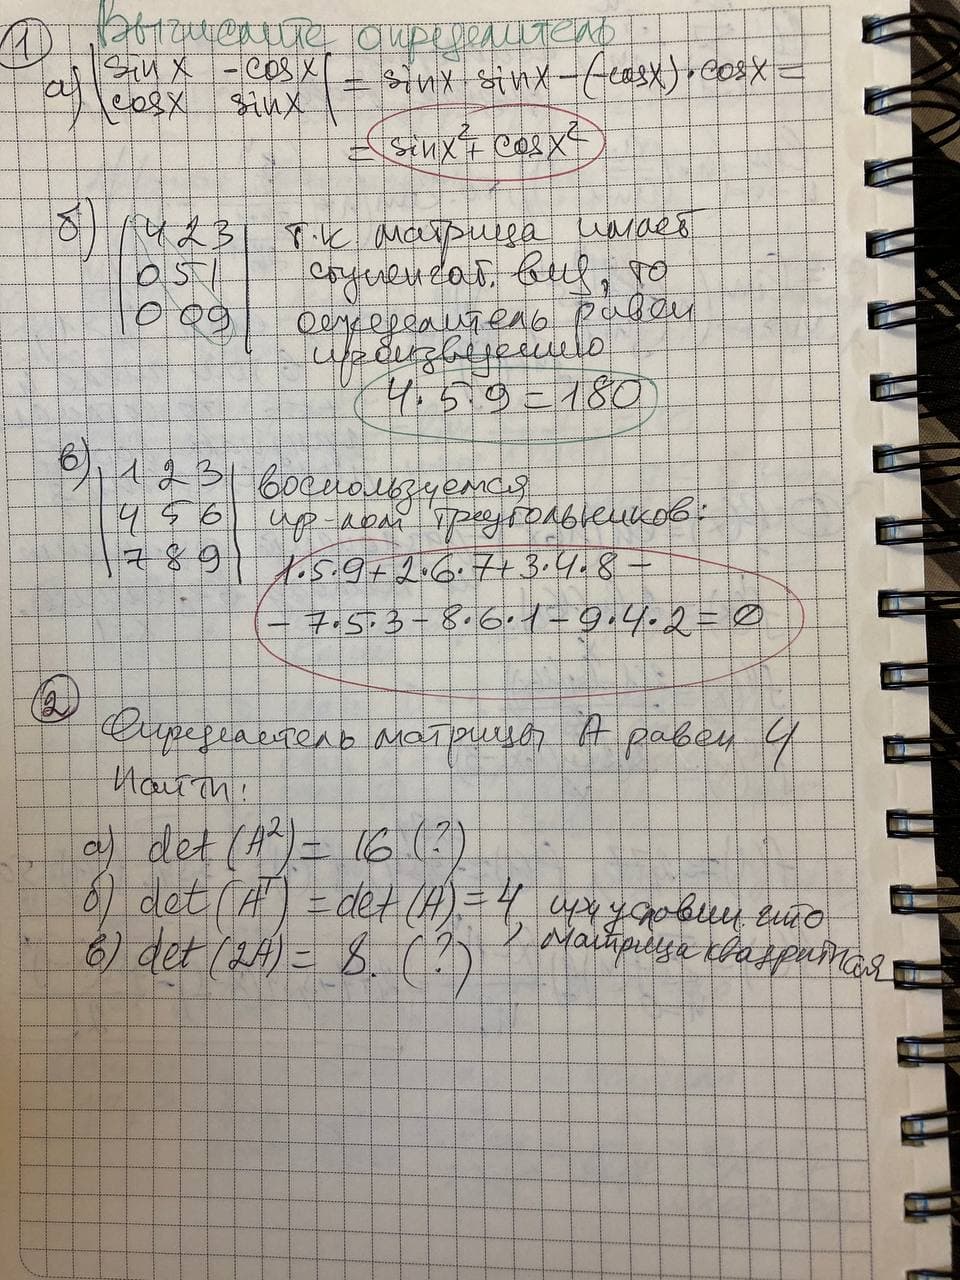 Вычислите определитель
1
а) | sinx -cosx | = sinx · sinx - (-cosx) · cosx =
| cosx sinx |
= sinx² + cosx²
б) | 4 2 3 | т.к матрица имеет
| 0 5 1 | ступенчат. вид, то
| 0 0 9 | определитель равен
произведению
4 · 5 · 9 = 180
в) | 1 2 3 | воспользуемся
| 4 5 6 | пр-лом треугольников:
| 7 8 9 | 1·5·9 + 2·6·7 + 3·4·8 -
- 7·5·3 - 8·6·1 - 9·4·2 = 0
2
Определитель матрицы A равен 4
Найти:
а) det (A²) = 16 (?)
б) det (Aᵀ) = det (A) = 4, при условии что
матрица квадратная
в) det (2A) = 8. (?)